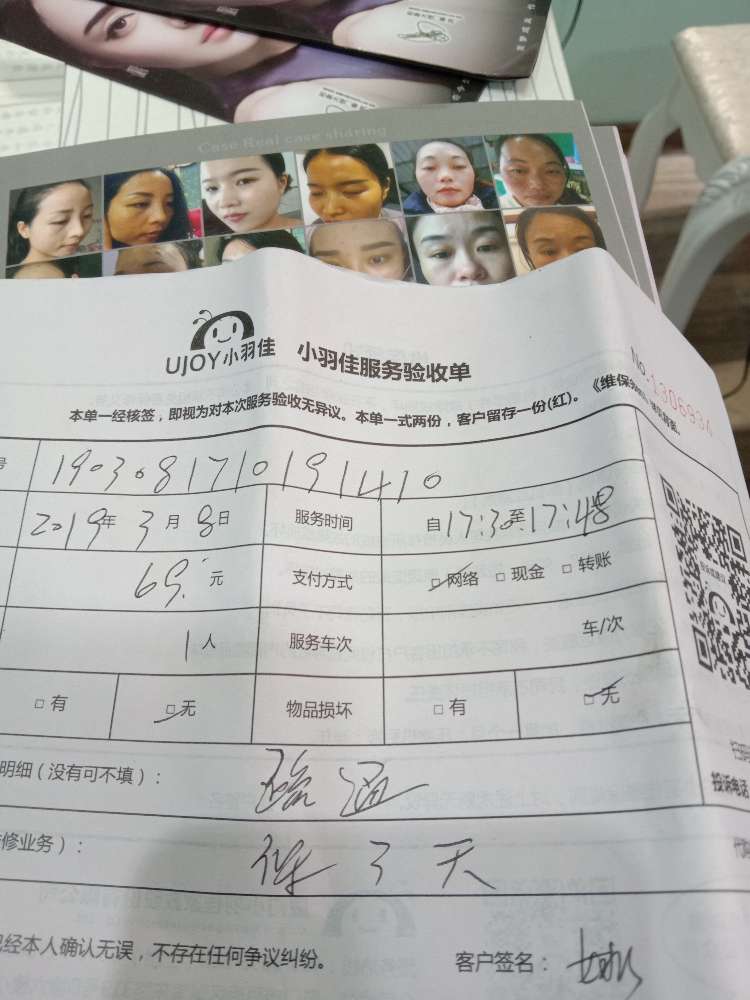 Case Real case sharing
UJOY小羽佳 小羽佳服务验收单
No.1306934
本单一经核签，即视为对本次服务验收无异议。本单一式两份，客户留存一份(红)。《维保
号 1903081710191410
2019年3月8日 服务时间 自17:30至17:48
69. 元 支付方式 □网络 □现金 □转账
1人 服务车次 车/次
□有 □无 物品损坏 □有 □无
明细（没有可不填）：
修业务）： 保 3 天
投诉电话
已经本人确认无误，不存在任何争议纠纷。 客户签名：